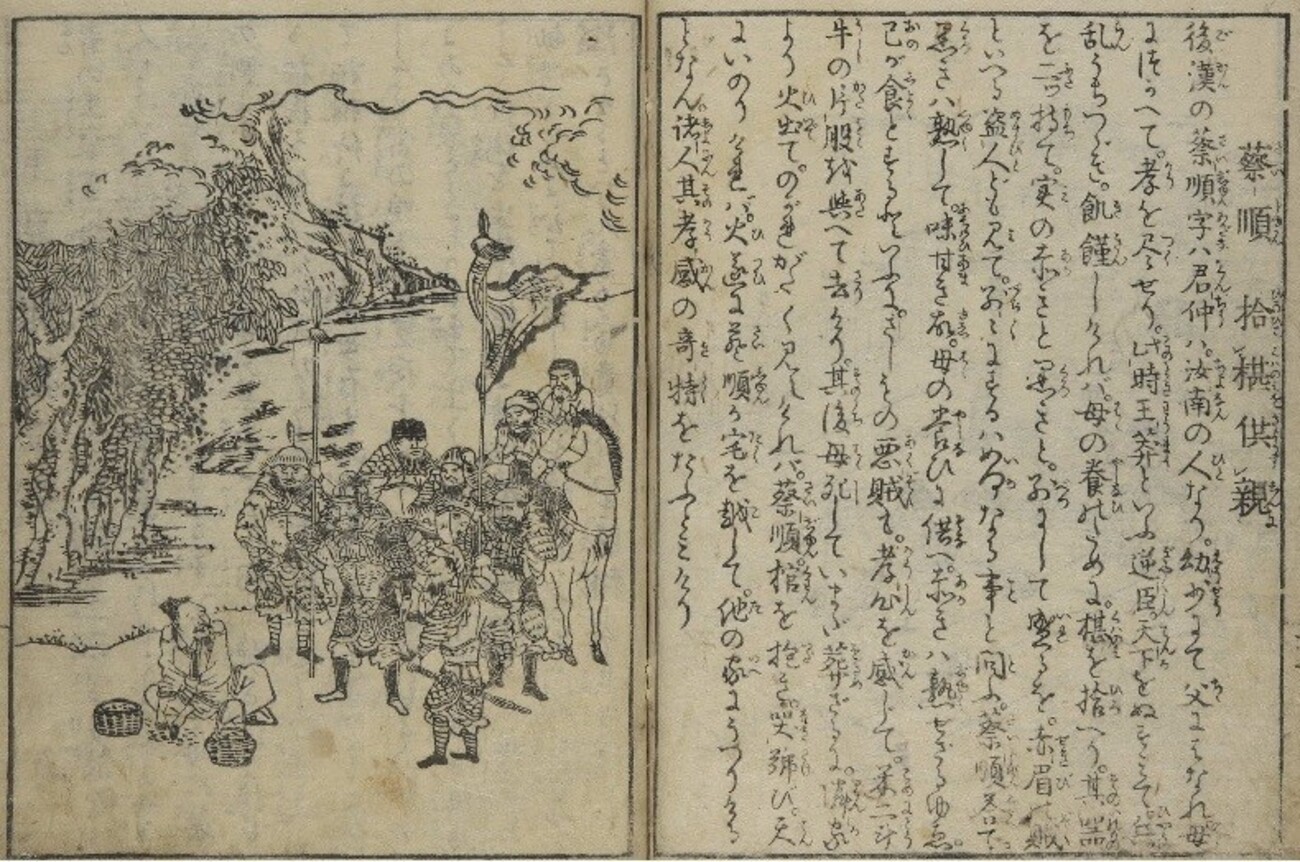 蔡順 拾椹供親
後漢の蔡順字ハ君仲ハ汝南の人なり。幼少にて父にはなれ母
につかへて。孝を尽せり。此時王莽といふ逆臣。天下をぬすミて。
乱うちつゞき。飢饉しけれバ。母の養のために。椹を拾へり。其器
を二ッ持て。実の赤きと黒きと。別にして置るを。赤眉の賊
といへる盗人ども見て。別々にするハいかなる事と問ふ。蔡順答て
黒きハ熟して味甘き故。母の養ひに供へ。赤きハ熟せざるゆゑ。
己が食とするといふ。さしもの悪賊も。孝心を感じて。米二斗
牛の片股を與へて去けり。其後母死していまだ葬ざるに。隣家
より火出て。のがれがたく見えけれバ。蔡順棺を抱き哭號び。天
にいのりけれバ。火遂に蔡順が宅を越して。他の家にうつりける
となん。諸人其孝感の奇特をたふとミけり